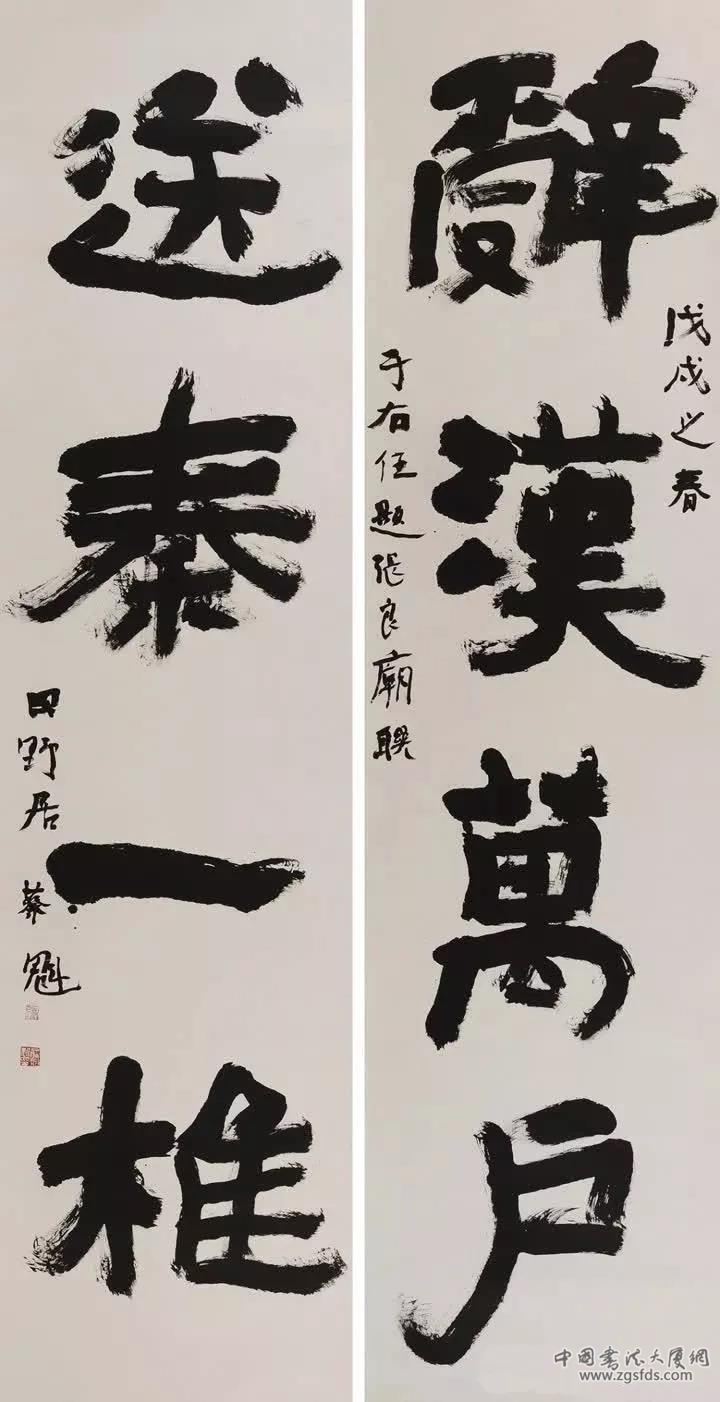 戊戌之春
辭漢萬户
于右任題張良廟聯
送秦一椎
田野居 蔡魁
中國書法大廈網
www.zgsfds.com